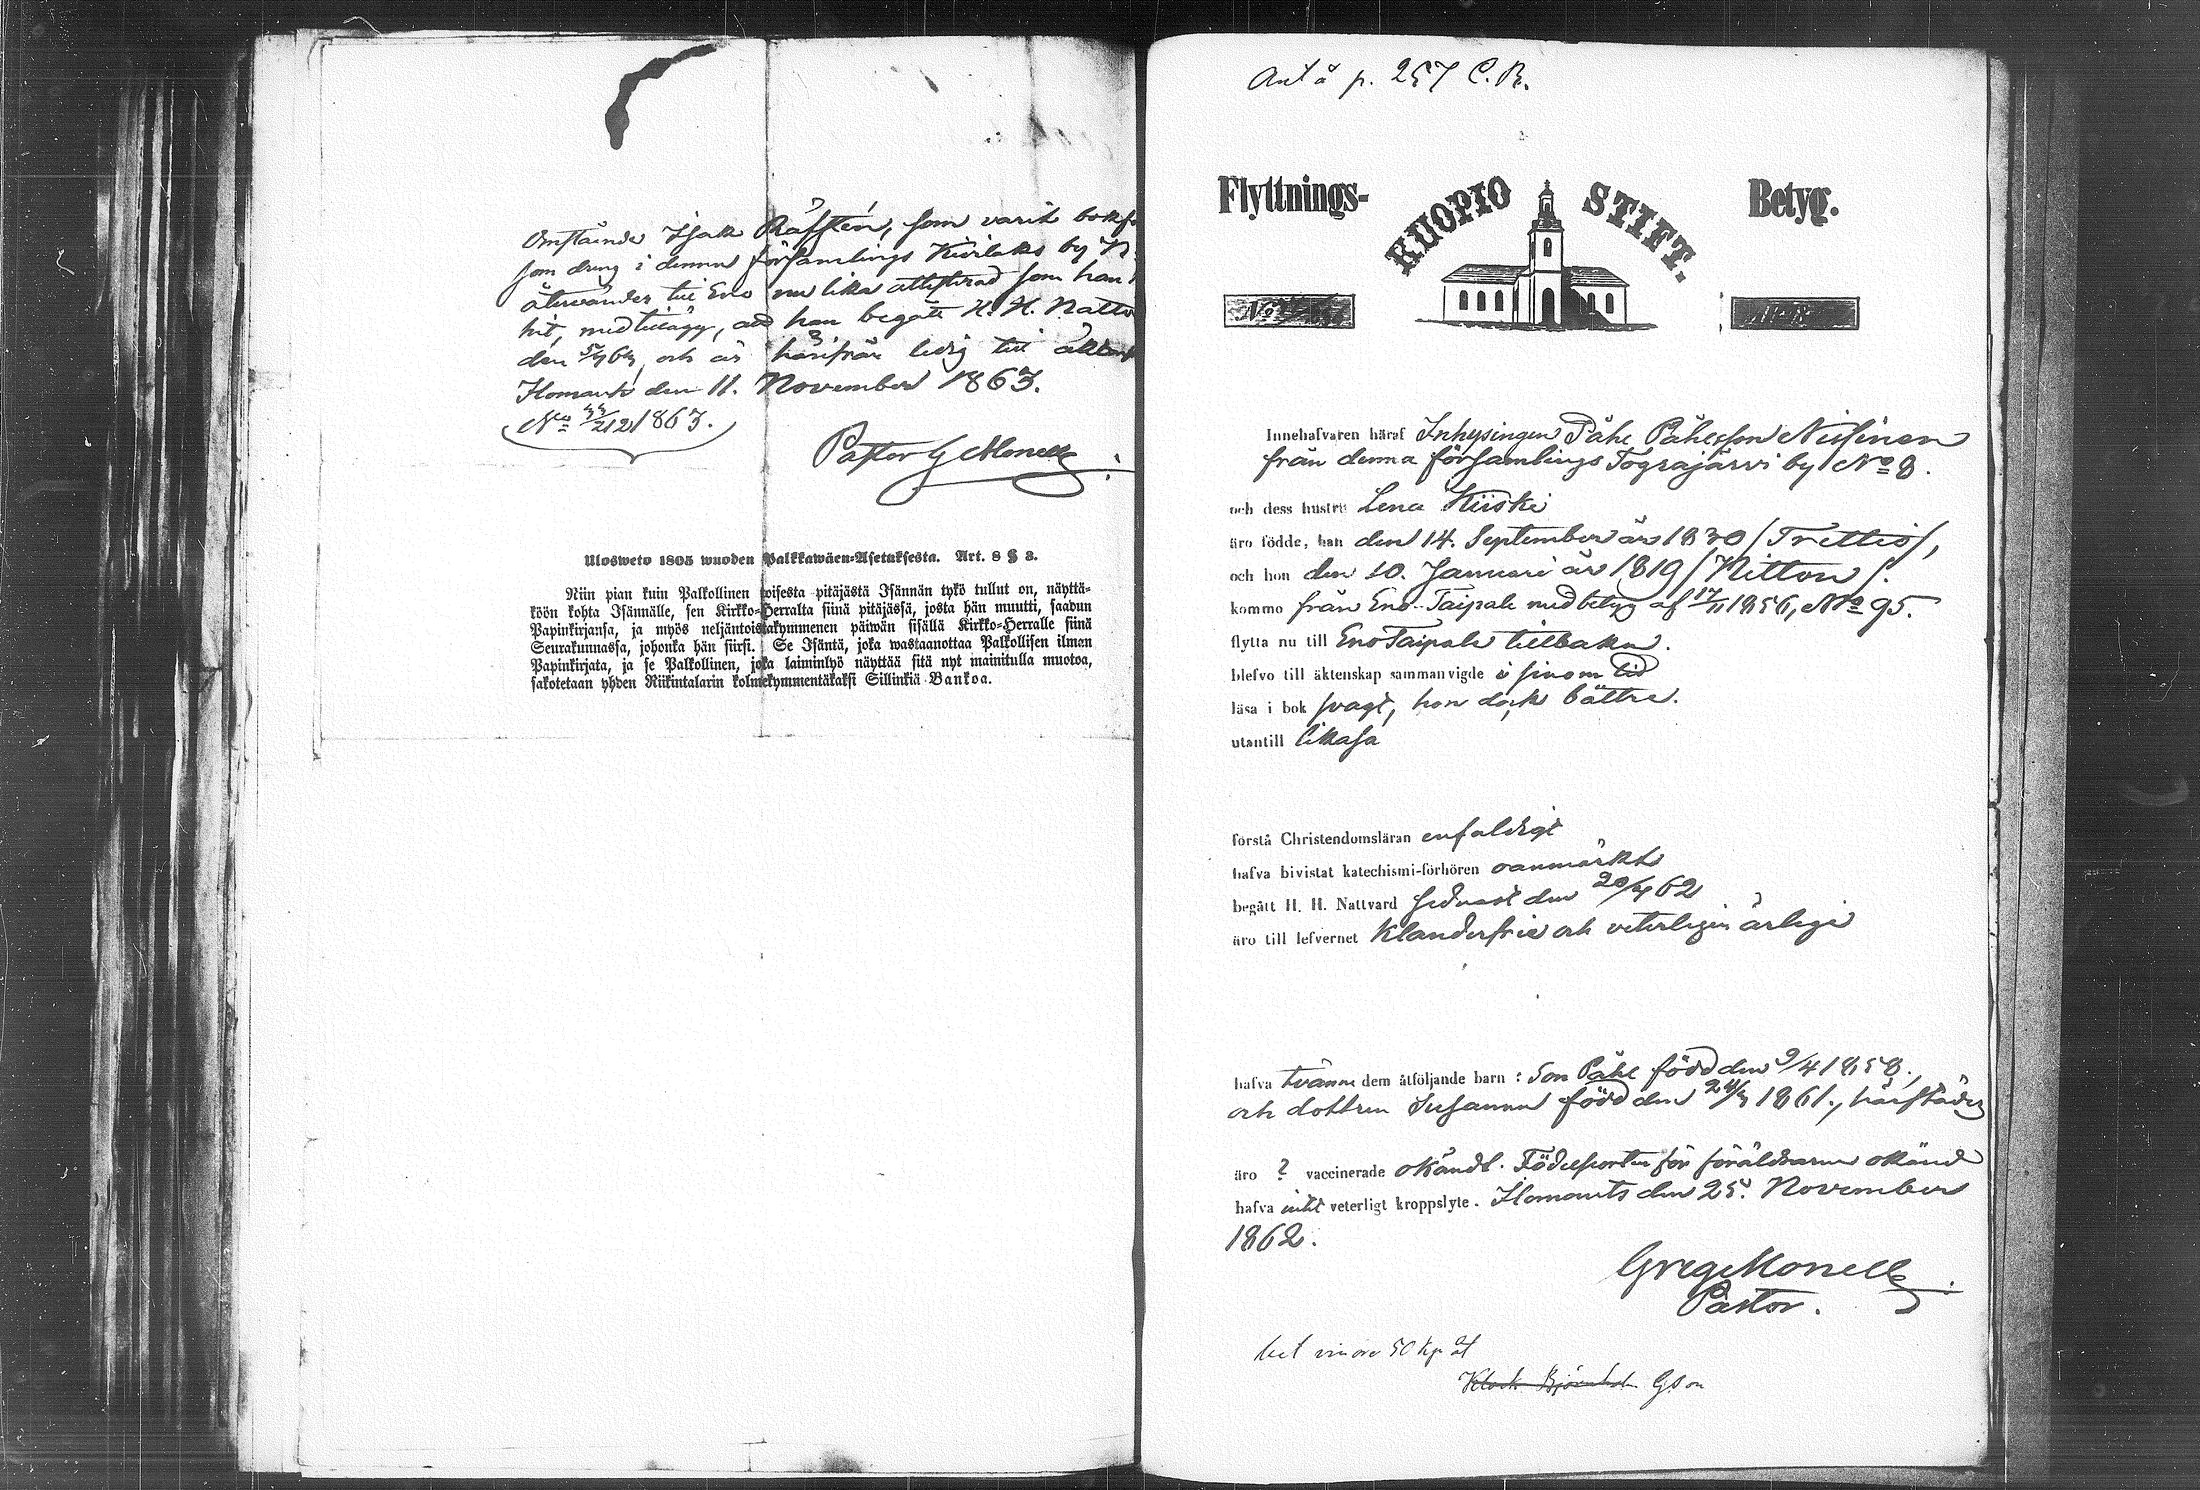 Omstående Isak Räfstén, som varit bokf
som dräng i denna församlings Kivilaks by N
återvänder till Eno nu lika attesterad som han
hit, med tillägg, att han begått H. H. Nattv
den 5/4 63, och är härifrån ledig till äkten
Ilomants den 11. November 1863.
No 212 1863.
Pastor G Monell
Ulosweto 1805 wuoden Palkkawäen-Asetuksesta. Art. 8 § 3.
Niin pian kuin Palkollinen toisesta pitäjästä Isännän tykö tullut on, näyttä-
köön kohta Isännälle, sen Kirkko-Herralta siinä pitäjässä, josta hän muutti, saadun
Papinkirjansa, ja myös neljäntoistakymmenen päiwän sisällä Kirkko-Herralle siinä
Seurakunnassa, johonka hän siirsi. Se Isäntä, joka wastaanottaa Palkollisen ilman
Papinkirjata, ja se Palkollinen, joka laiminlyö näyttää sitä nyt mainitulla muotoa,
sakotetaan yhden Riikintalarin kolmekymmentäkaksi Sillinkiä Bankoa.
Ant å p. 257 C. B.
Flyttnings- KUOPIO STIFT. Betyg.
No
Innehafvaren häraf Inhysingen Påhl Påhlsson Nissinen
från denna församlings Tograjärvi by No 8.
och dess hustru Lena Kiiski
äro födde, han den 14. September år 1830 / Trettio /,
och hon den 10. Januari år 1819 / Nitton /.
kommo från Eno-Taipale med betyg af 17/11 1856, No 95.
flytta nu till Eno Taipale tillbaka.
blefvo till äktenskap sammanvigde i sinom tid
läsa i bok svagt, hon dock bättre.
utantill likaså
förstå Christendomsläran enfaldigt
hafva bivistat katechismi-förhören oanmärkt
begått H. H. Nattvard sednast den 20/4 62
äro till lefvernet klanderfrie och veterligen ärlige
hafva tvänne dem åtföljande barn: Son Påhl född den 9/4 1858,
och dottren Susanna född den 24/3 1861., härstädes
äro ? vaccinerade okändt. Födelseorten för föräldrarne okänd
hafva intet veterligt kroppslyte. Ilomants den 25. November
1862.
Greg Monell
Pastor.
50 kp åt
Klock Björnholm